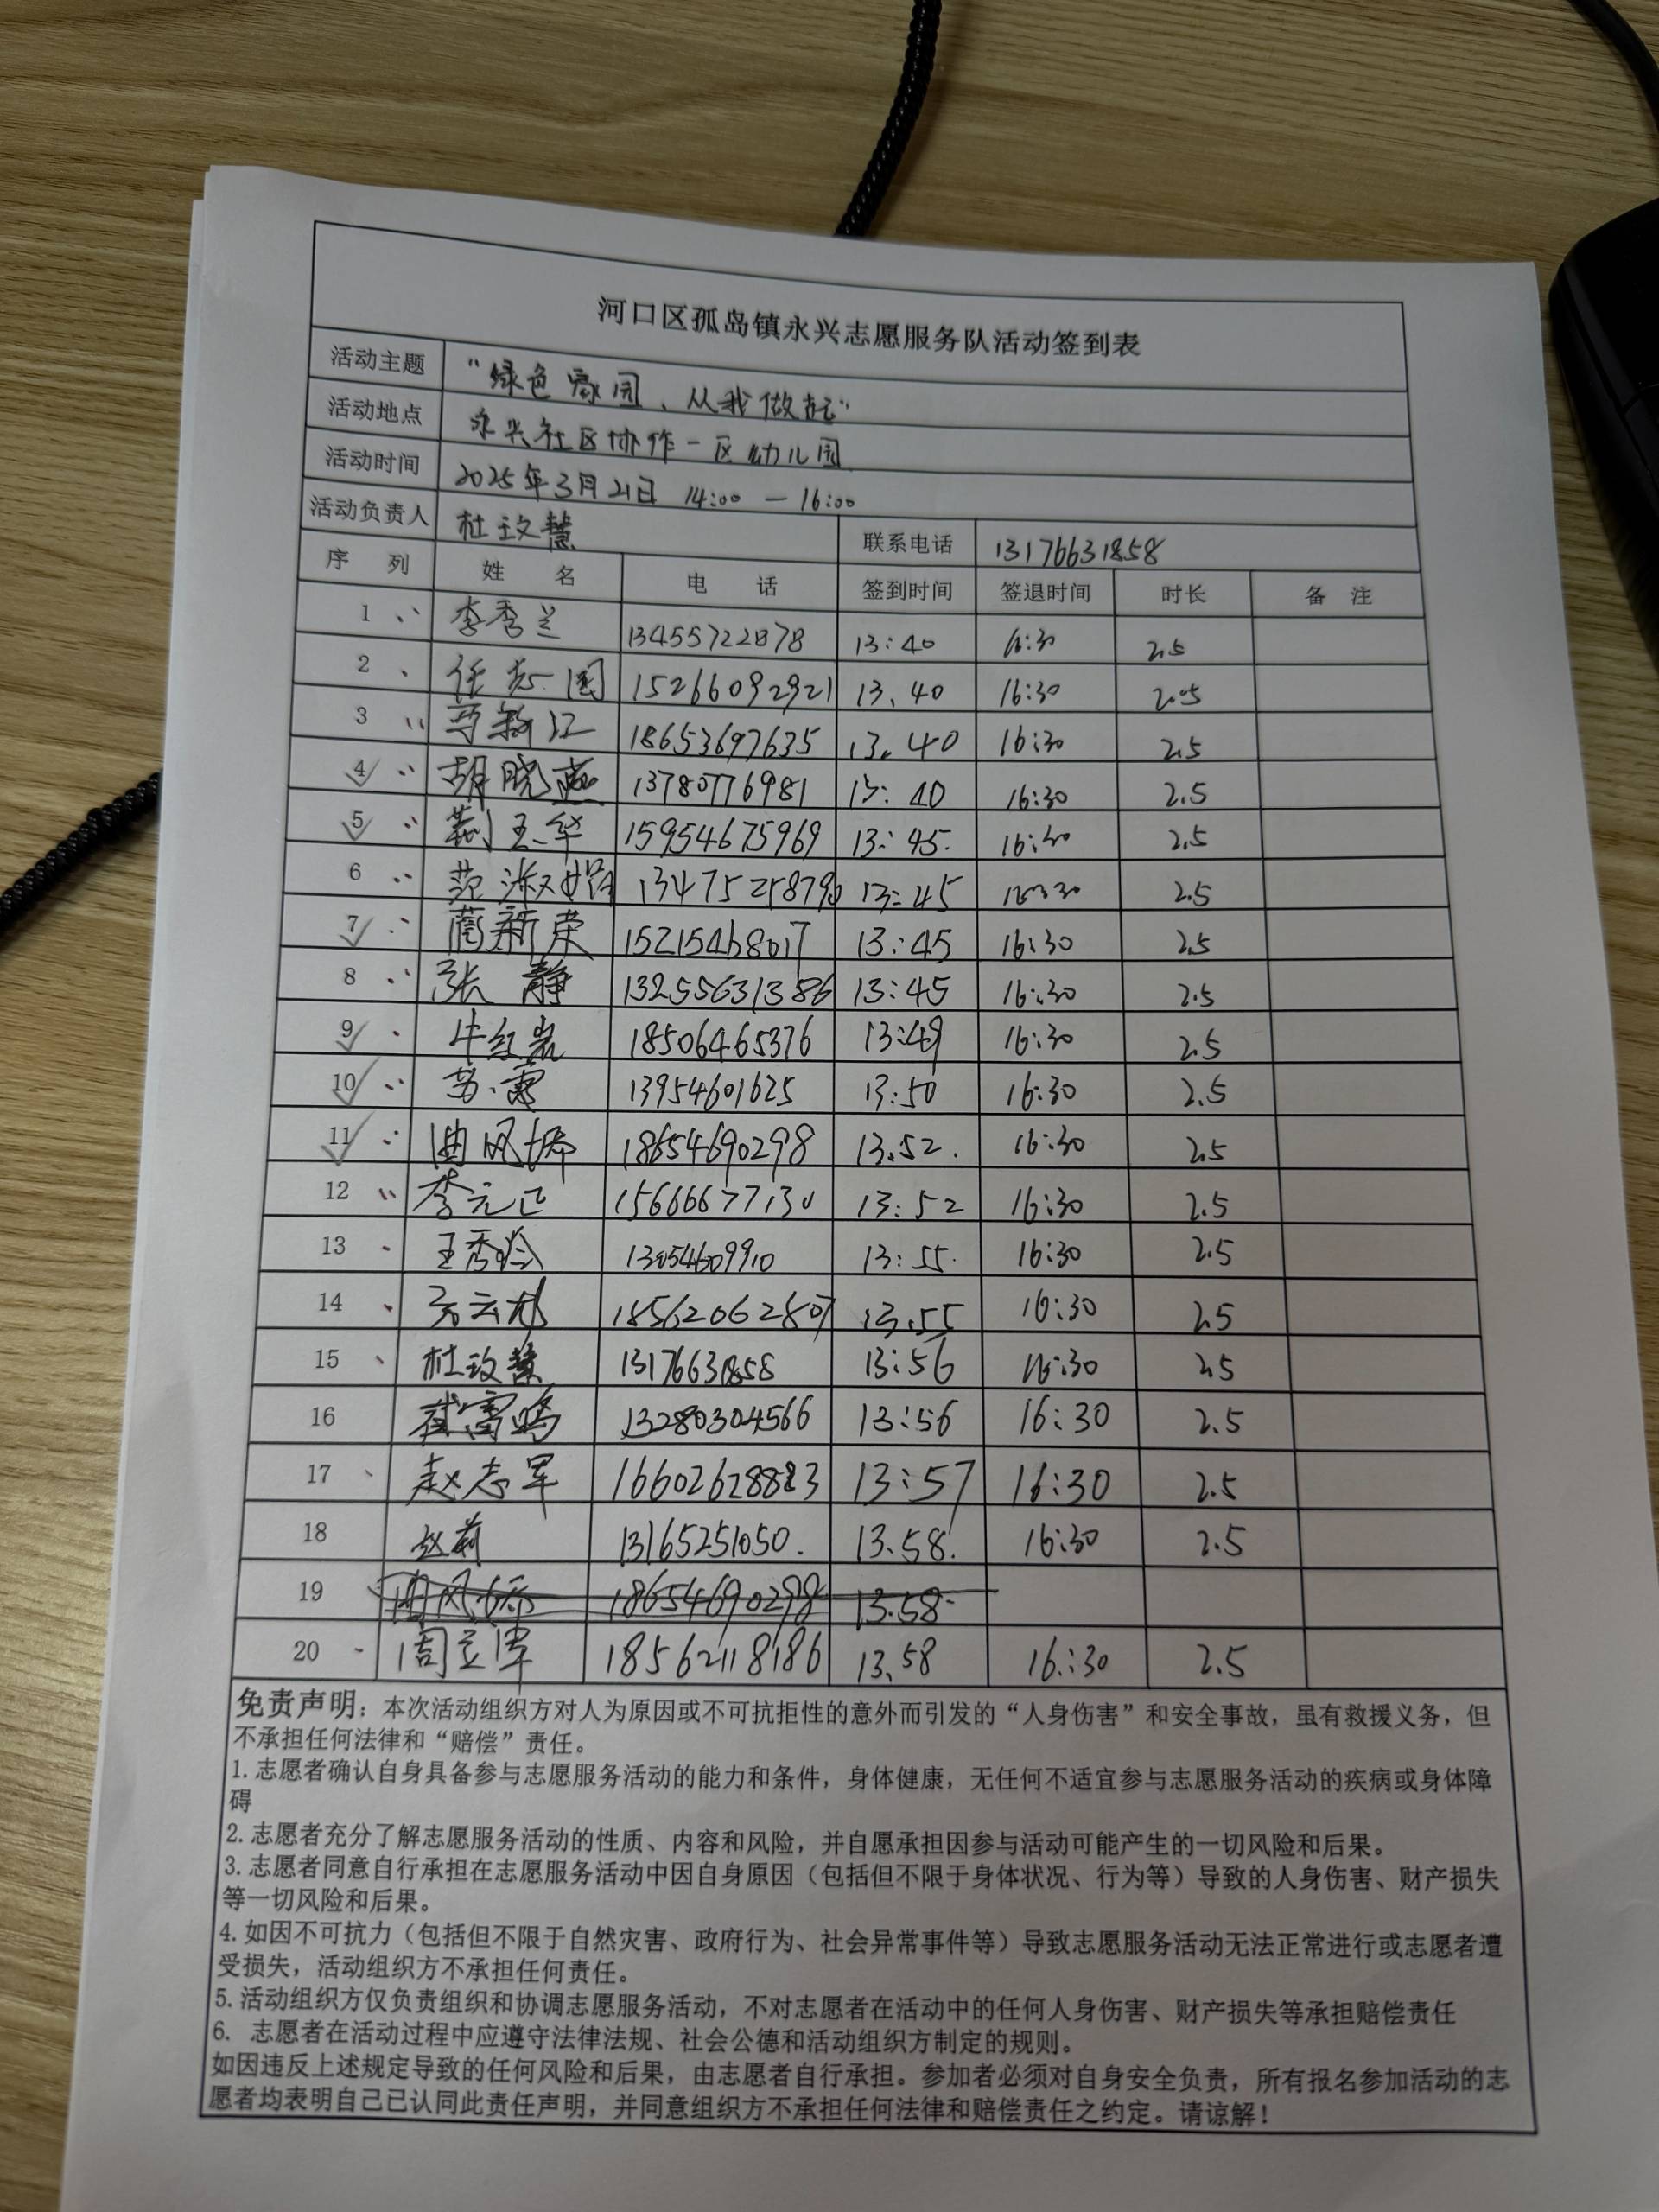 河口区孤岛镇永兴志愿服务队活动签到表
活动主题 "绿色家园、从我做起"
活动地点 永兴社区协作一区幼儿园
活动时间 2025年3月21日 14:00 — 16:00
活动负责人 杜玟慧 联系电话 13176631858
序 列 姓 名 电 话 签到时间 签退时间 时长 备 注
1 李秀兰 13455722878 13:40 16:30 2.5
2 任志国 15266092921 13.40 16:30 2.5
3 18653697635 13.40 16:30 2.5
4 胡晓燕 13780776981 13:40 16:30 2.5
5 荆玉华 15954675969 13:45. 16:30 2.5
6 范淑娟 13:45 16:30 2.5
7 蔺新荣 15215468017 13:45 16:30 2.5
8 张静 13255631386 13:45 16:30 2.5
9 牛红岩 18506465376 13:49 16:30 2.5
10 苏露 13954601625 13:50 16:30 2.5
11 曲风娇 18654690298 13.52. 16:30 2.5
12 李元正 15666677130 13:52 16:30 2.5
13 王秀玲 13054609910 13:55. 16:30 2.5
14 18562062807 13.55 16:30 2.5
15 杜玟慧 13176631858 13:56 16:30 2.5
16 崔雷鸣 13280304566 13:56 16:30 2.5
17 赵志军 16602628883 13:57 16:30 2.5
18 赵莉 13165251050. 13.58. 16:30 2.5
19 曲风娇 18654690298 13.58
20 周立津 18562118186 13.58 16:30 2.5
免责声明：本次活动组织方对人为原因或不可抗拒性的意外而引发的“人身伤害”和安全事故，虽有救援义务，但
不承担任何法律和“赔偿”责任。
1.志愿者确认自身具备参与志愿服务活动的能力和条件，身体健康，无任何不适宜参与志愿服务活动的疾病或身体障
碍
2.志愿者充分了解志愿服务活动的性质、内容和风险，并自愿承担因参与活动可能产生的一切风险和后果。
3.志愿者同意自行承担在志愿服务活动中因自身原因（包括但不限于身体状况、行为等）导致的人身伤害、财产损失
等一切风险和后果。
4.如因不可抗力（包括但不限于自然灾害、政府行为、社会异常事件等）导致志愿服务活动无法正常进行或志愿者遭
受损失，活动组织方不承担任何责任。
5.活动组织方仅负责组织和协调志愿服务活动，不对志愿者在活动中的任何人身伤害、财产损失等承担赔偿责任
6. 志愿者在活动过程中应遵守法律法规、社会公德和活动组织方制定的规则。
如因违反上述规定导致的任何风险和后果，由志愿者自行承担。参加者必须对自身安全负责，所有报名参加活动的志
愿者均表明自己已认同此责任声明，并同意组织方不承担任何法律和赔偿责任之约定。请谅解！